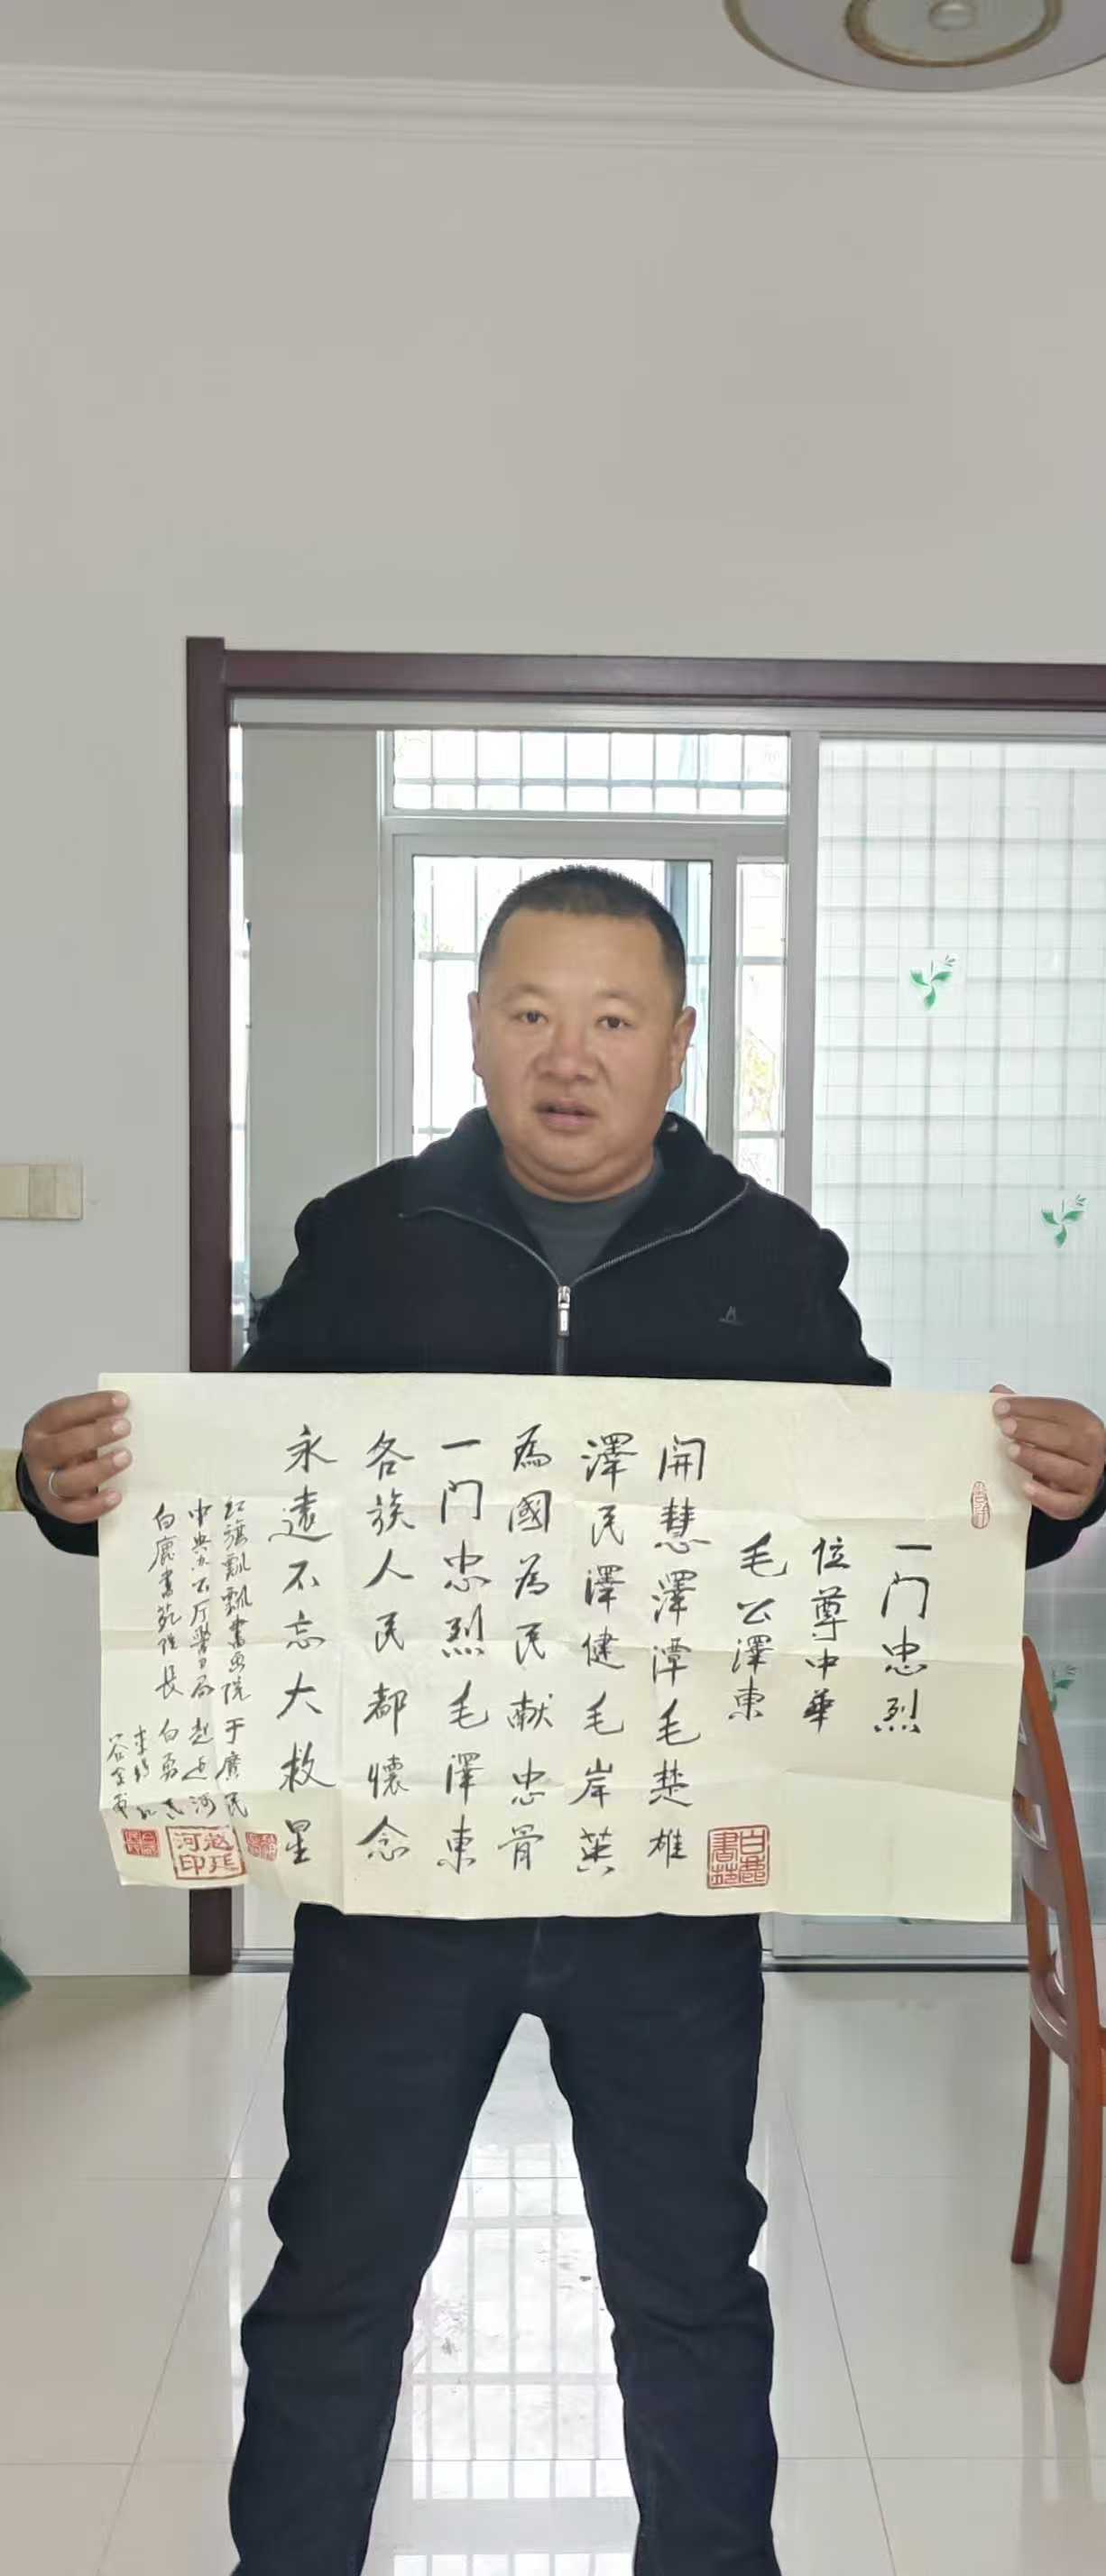 一门忠烈
位尊中華
毛公澤東
開慧澤潭毛楚雄
澤民澤健毛岸英
為國為民献忠骨
一门忠烈毛澤東
各族人民都懷念
永遠不忘大救星
红旗飘飘書画院 于廣民
中央办公厅警卫局 赵廷河
白鹿書苑院長 白勇
白鹿書苑
赵廷河印